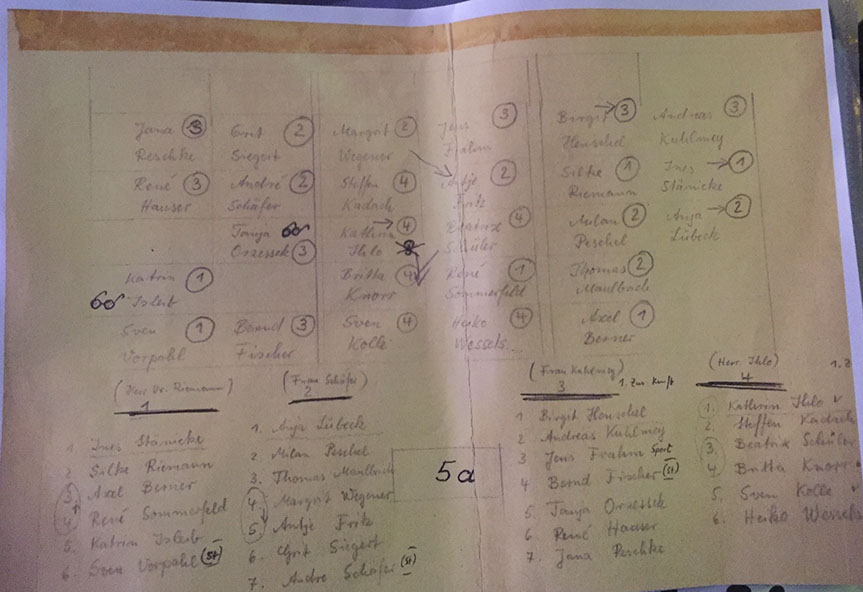 Jana 3 Grit 2 Margrit 2 Jens 3 Birgit → 3 Andreas 3
Reschke Siegert Wegener Frahm Henschel Kuhlmey
René 3 André 2 Steffen 4 Antje 2 Silke 1 Ines → 1
Hauser Schäfer Kadach Fritz Riemann Stärnicke
Tanja Kathrin → 4 Beatrix 4 Milan 2 Anja → 2
Orzessek 3 Ihlo Schüler Peschel Lübeck
Katrin 1 Britta 4 René 1 Thomas 2
Isleib Knorr Sommerfeld Maulbrich
Sven 1 Bernd 3 Sven 4 Heiko 4 Axel 1
Vorpahl Fischer Kolle Wessels Berner
(Herr Dr. Riemann)
1
1. Ines Stärnicke
2 Silke Riemann
3. Axel Berner
4. René Sommerfeld
5. Katrin Isleib
6. Sven Vorpahl (St)
(Frau Schäfer)
2
1. Anja Lübeck
2. Milan Peschel
3. Thomas Maulbrich
4. Margrit Wegener
5. Antje Fritz
6. Grit Siegert
7. André Schäfer (St)
5a
(Frau Kuhlmey)
3 1. Zur Kunft
1. Birgit Henschel
2 Andreas Kuhlmey
3 Jens Frahm Sport
4 Bernd Fischer (St)
5 Tanja Orzessek
6 René Hauser
7. Jana Reschke
(Herr Ihlo) 1. Zu
4
1. Kathrin Ihlo
2. Steffen Kadach
3. Beatrix Schüler
4. Britta Knorr
5. Sven Kolle
6. Heiko Wessels